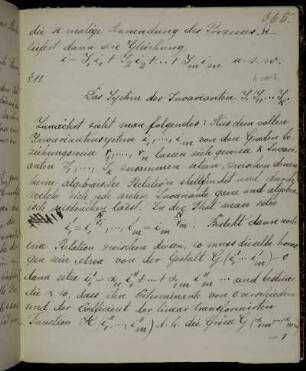 365.
die n malige Anwendung des Prozesses H
liefert dann die Gleichung
i = I₁i₁ + I₂i₂ + … + Iₘiₘ u. s. w.
§ 11.
Das System der Invarianten I, I₁, … Iₖ.
Zunächst sieht man folgendes: Aus dem vollen
Invariantensystem i₁, …, iₘ von den Graden
ν₁, …, νₘ lassen sich gewisse κ Invari-
anten I₁, … Iₖ zwischen denen
keine algebraische Relation stattfindet und durch
welche sich jede andere Invariante ganz und algebra-
isch ausdrücken lässt. In der That man setze
Besteht dann noch
eine Relation zwischen diesen, so muss die alle homo-
gen sein etwa von der Gestalt G(i₁' … iₘ') = 0
dann setze i₁' = α₁₁ i₁'' + … + α₁ₘ iₘ'' … und bestimme
die α so, dass ihre Determinante von 0 verschieden
und der Coefficient der linear transformierten
Function H(i₁'', …, iₘ'') d. h. die Grösse G(α₁ₘ, … αₘₘ)
= 1